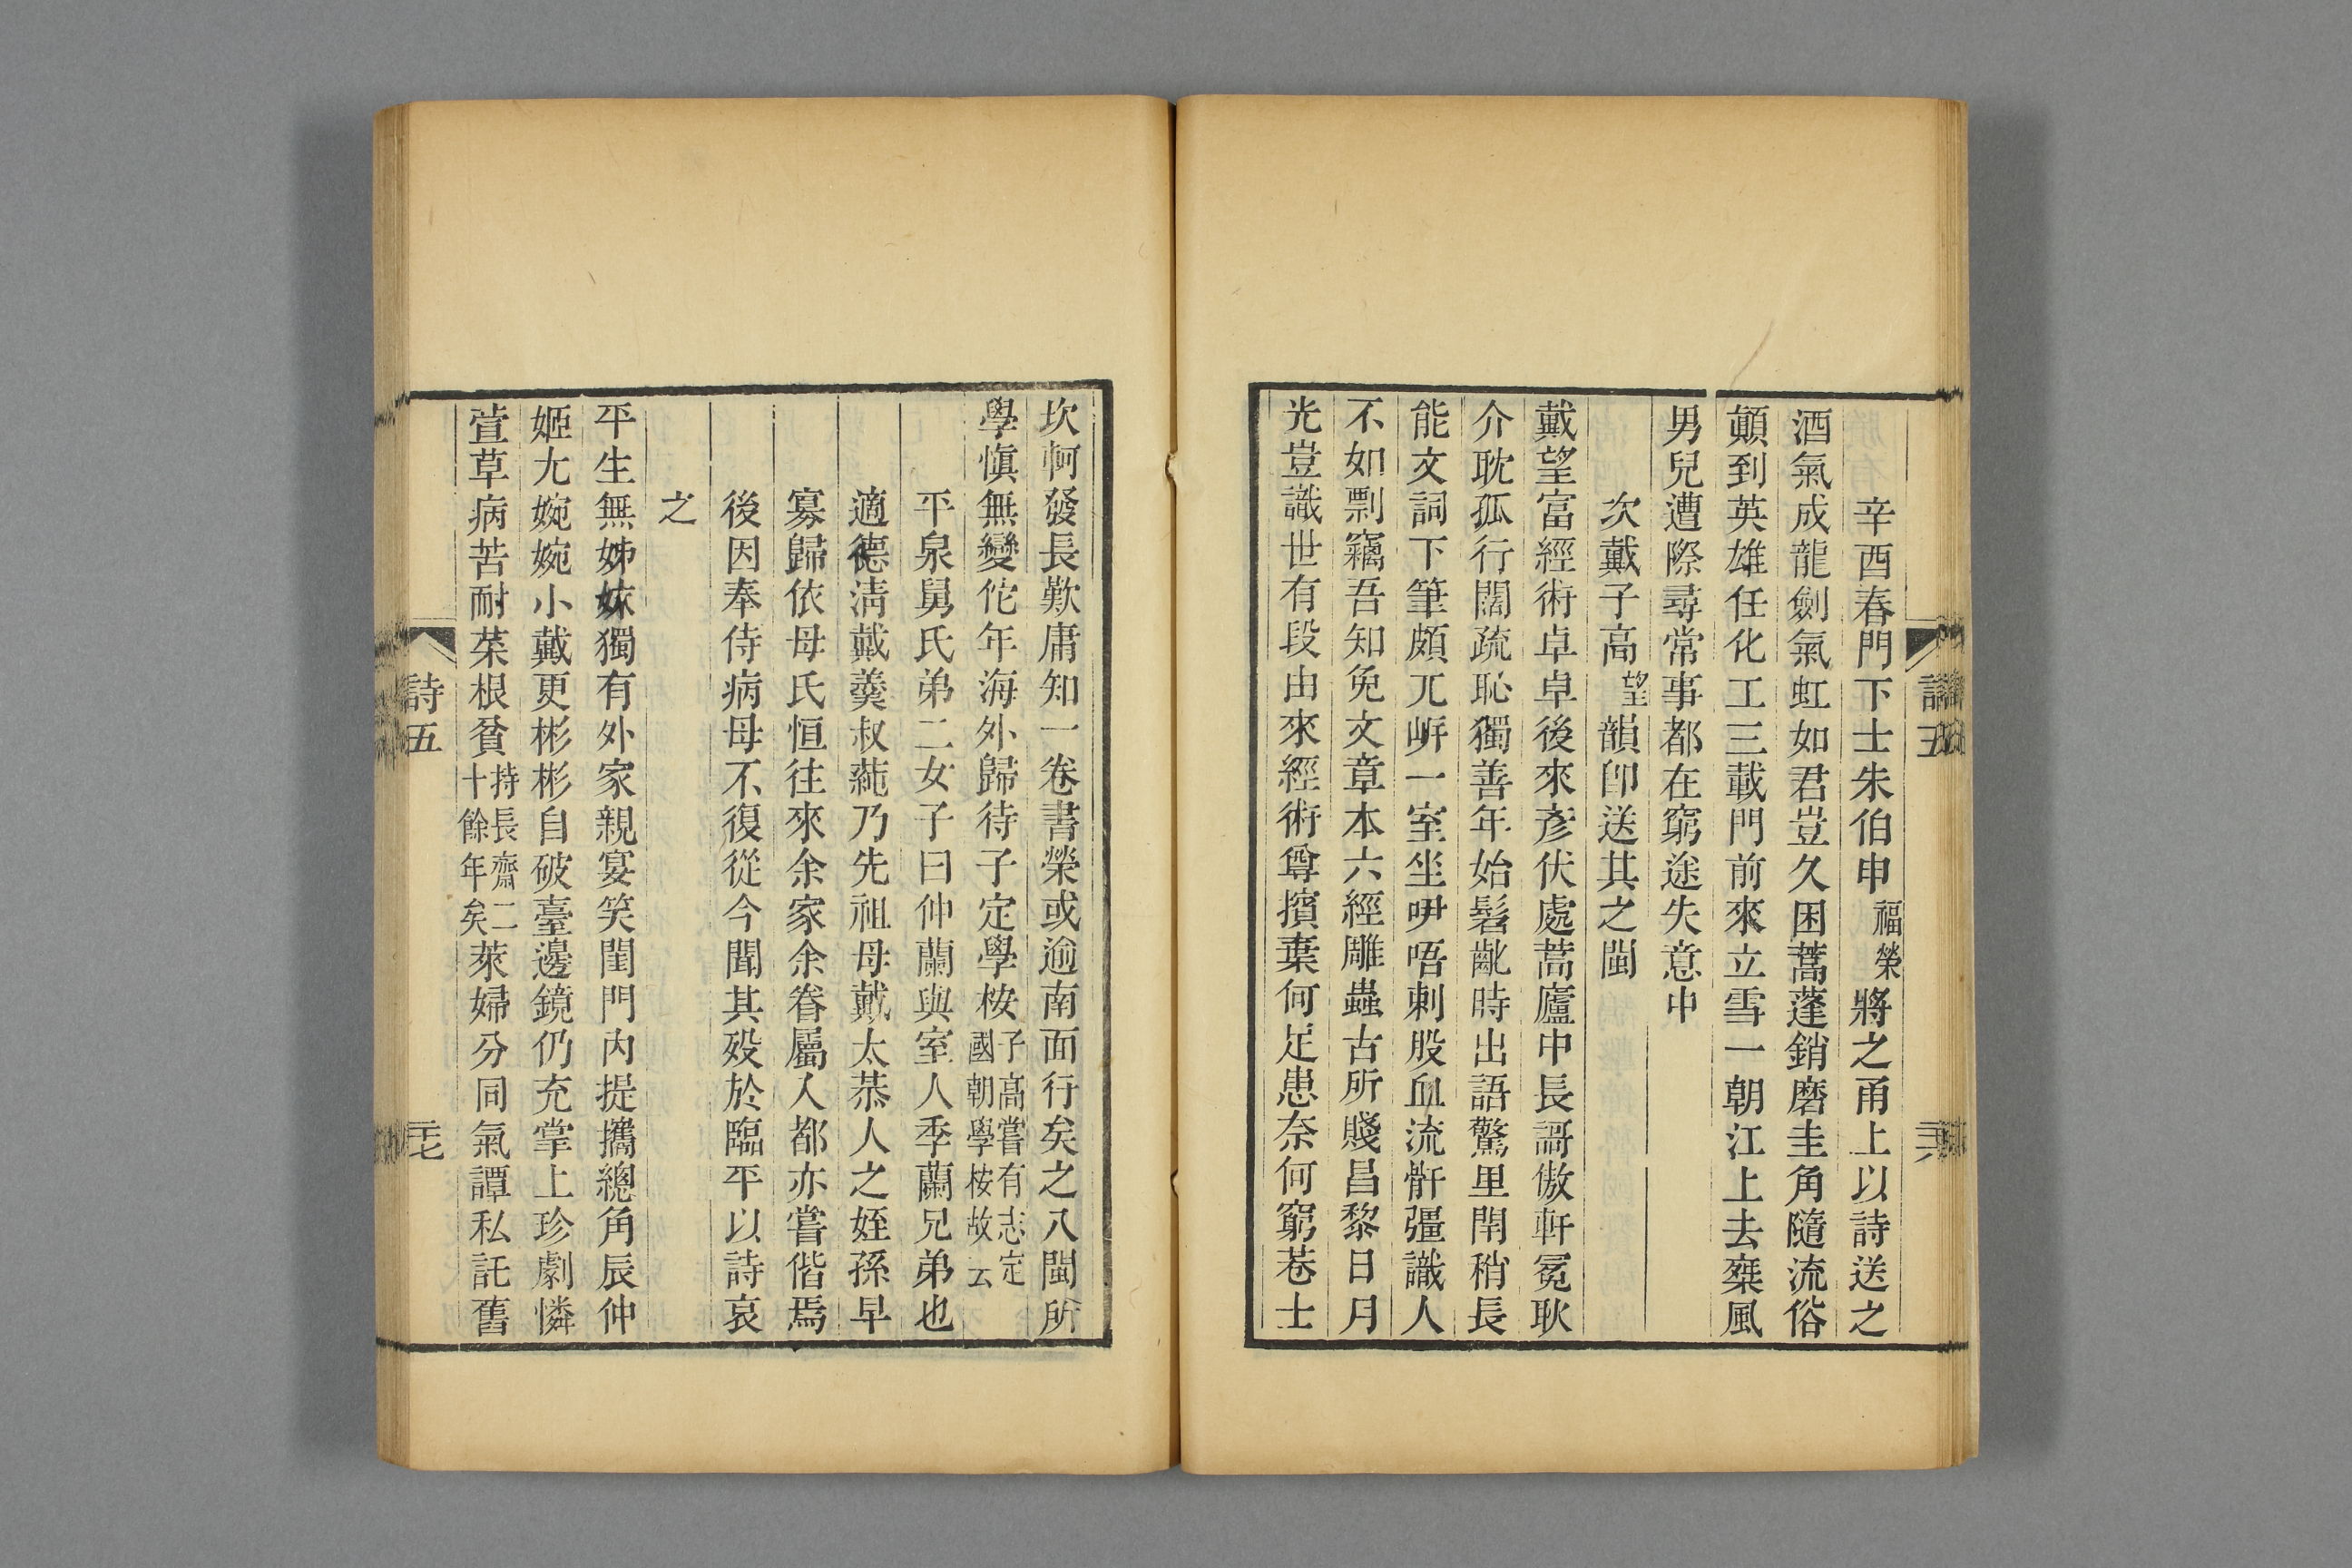 詩五
辛酉春門下士朱伯申福榮將之甬上以詩送之
酒氣成龍劍氣虹如君豈久困蒿蓬銷磨圭角隨流俗
顛到英雄任化工三載門前來立雪一朝江上去椉風
男兒遭際尋常事都在窮途失意中
次戴子高望韻卽送其之閩
戴望富經術卓卓後來彥伏處蒿廬中長謌傲軒冕耿
介耽孤行闊疏恥獨善年始髫齔時出語驚里閈稍長
能文詞下筆頗兀岸一室坐吚唔刺股血流骭彊識人
不如剽竊吾知免文章本六經雕蟲古所賤昌黎日月
光豈識世有段由來經術尊擯棄何足患奈何窮巷士
坎軻發長歎庸知一卷書榮或逾南面行矣之八閩所
學愼無變佗年海外歸待子定學桉子高嘗有志定國朝學桉故云
平泉舅氏弟二女子曰仲蘭與室人季蘭兄弟也
適德淸戴羹叔蒓乃先祖母戴太恭人之姪孫早
寡歸依母氏恒往來余家余眷屬人都亦嘗偕焉
後因奉侍病母不復從今聞其歿於臨平以詩哀
之
平生無姊妹獨有外家親宴笑閨門內提攜總角辰仲
姬尢婉婉小戴更彬彬自破臺邊鏡仍充掌上珍劇憐
萱草病苦耐菜根貧持長齋二十餘年矣萊婦分同氣譚私託舊
詩五